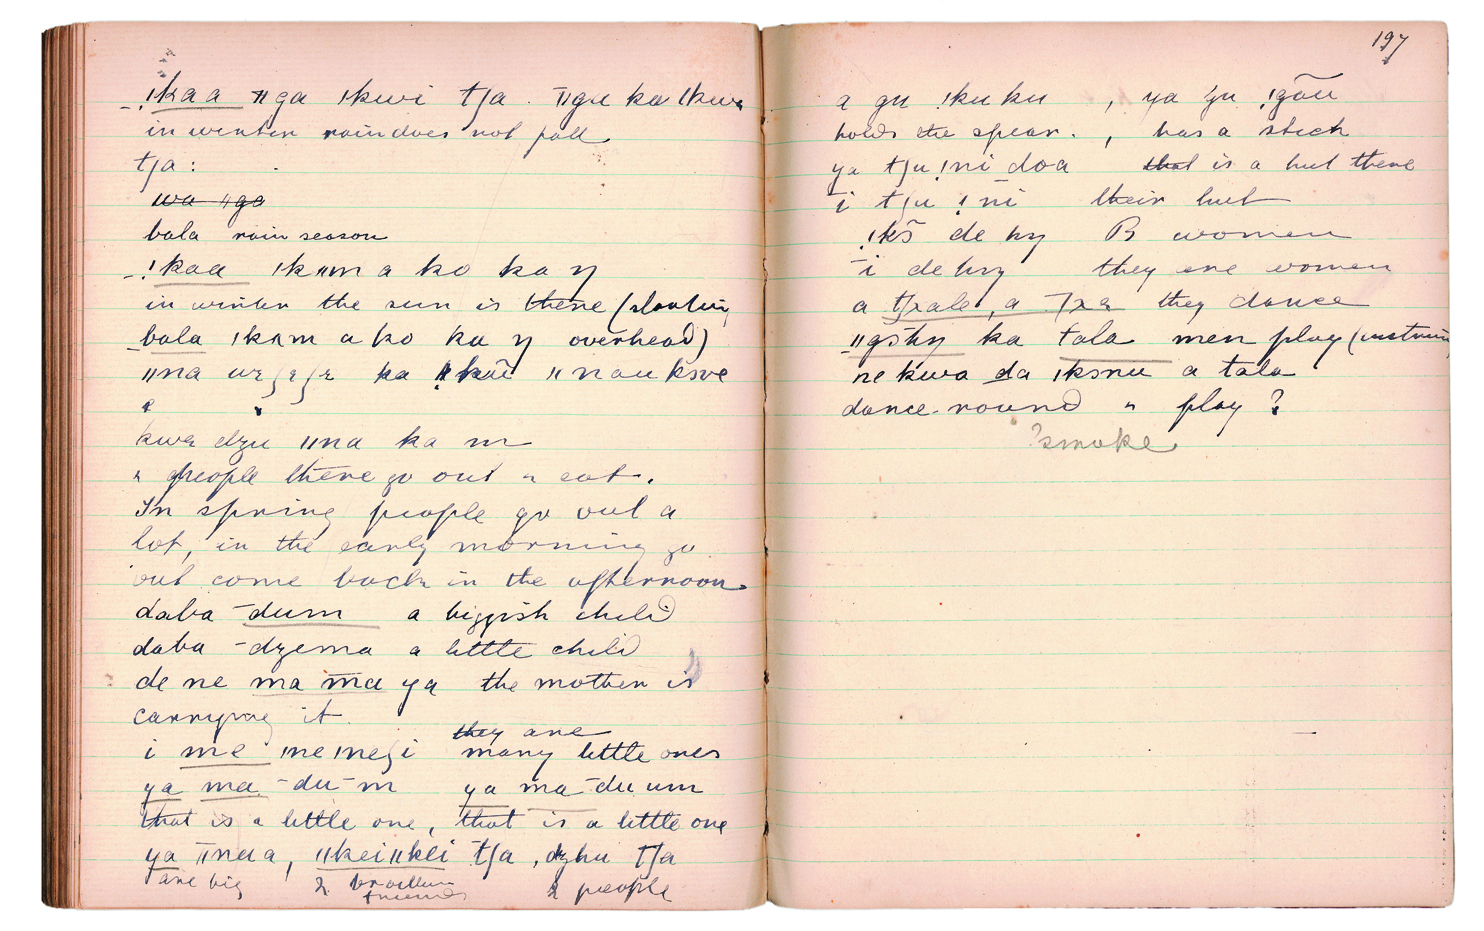 ǃkaa ǁga ǀkwi tʃa . ǁgu ka ǀkwa
in winter rain does not fall
tʃa :
wa ǂga
bala rain season
ǃkaa ǀkɜm a ko ka η
in winter the sun is there (slanting
bala ǀkɜm a ko ka η overhead)
ǁna ka ǁnau ksve
kwa dzu ǁna ka m
" people there go out " eat.
In spring people go out a
lot, in the early morning go
out come back in the afternoon
daba -dum a biggish child
daba -dzema a little child
de ne ma ma ya the mother is
carrying it
they are
i me ǀneǀneʃi many little ones
ya ma -du-m ya ma-du um
that is a little one, that is a little one
ya ǁnua, ǁkeiǁkei tʃa, dzhu tʃa
are big 2 2 people
197
a gu ǃkuku , ya gu ǃgõu
holds the spear. , has a stick
ya tʃu ǃni doa that is a hut there
i tʃu ǃni their hut
de hη B women
i de hη they are women
a tʃale, a they dance
ka tala men play (instrum
ne kwa da ǀksnu a tala
dance-round " play ?
?smoke